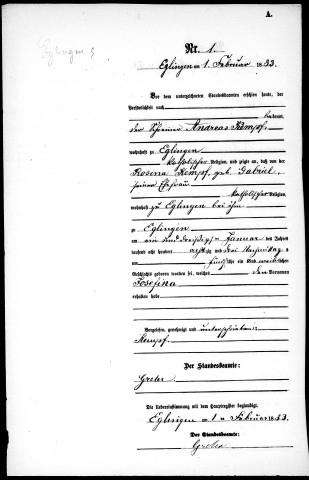 A.
Nr. 1.
Eglingen am 1. Februar 1883.
Vor dem unterzeichneten Standesbeamten erschien heute, der
Persönlichkeit nach
bekannt,
der Schreiner Andreas Kempf,
wohnhaft zu Eglingen
katholischer Religion, und zeigte an, daß von der
Rosina Kempf, geb. Gabriel,
seiner Ehefrau
katholischer Religion,
wohnhaft zu Eglingen bei ihm
zu Eglingen
am ein und dreißigsten Januar des Jahres
tausend acht hundert achtzig und drei Nachmittags
um fünf Uhr ein Kind weiblichen
Geschlechts geboren worden sei, welches den Vornamen
Josefina
erhalten habe
Vorgelesen, genehmigt und unterschrieben
Kempf.
Der Standesbeamte:
Die Uebereinstimmung mit dem Hauptregister beglaubigt.
Eglingen am 1 ten Februar 1883.
Der Standesbeamte: